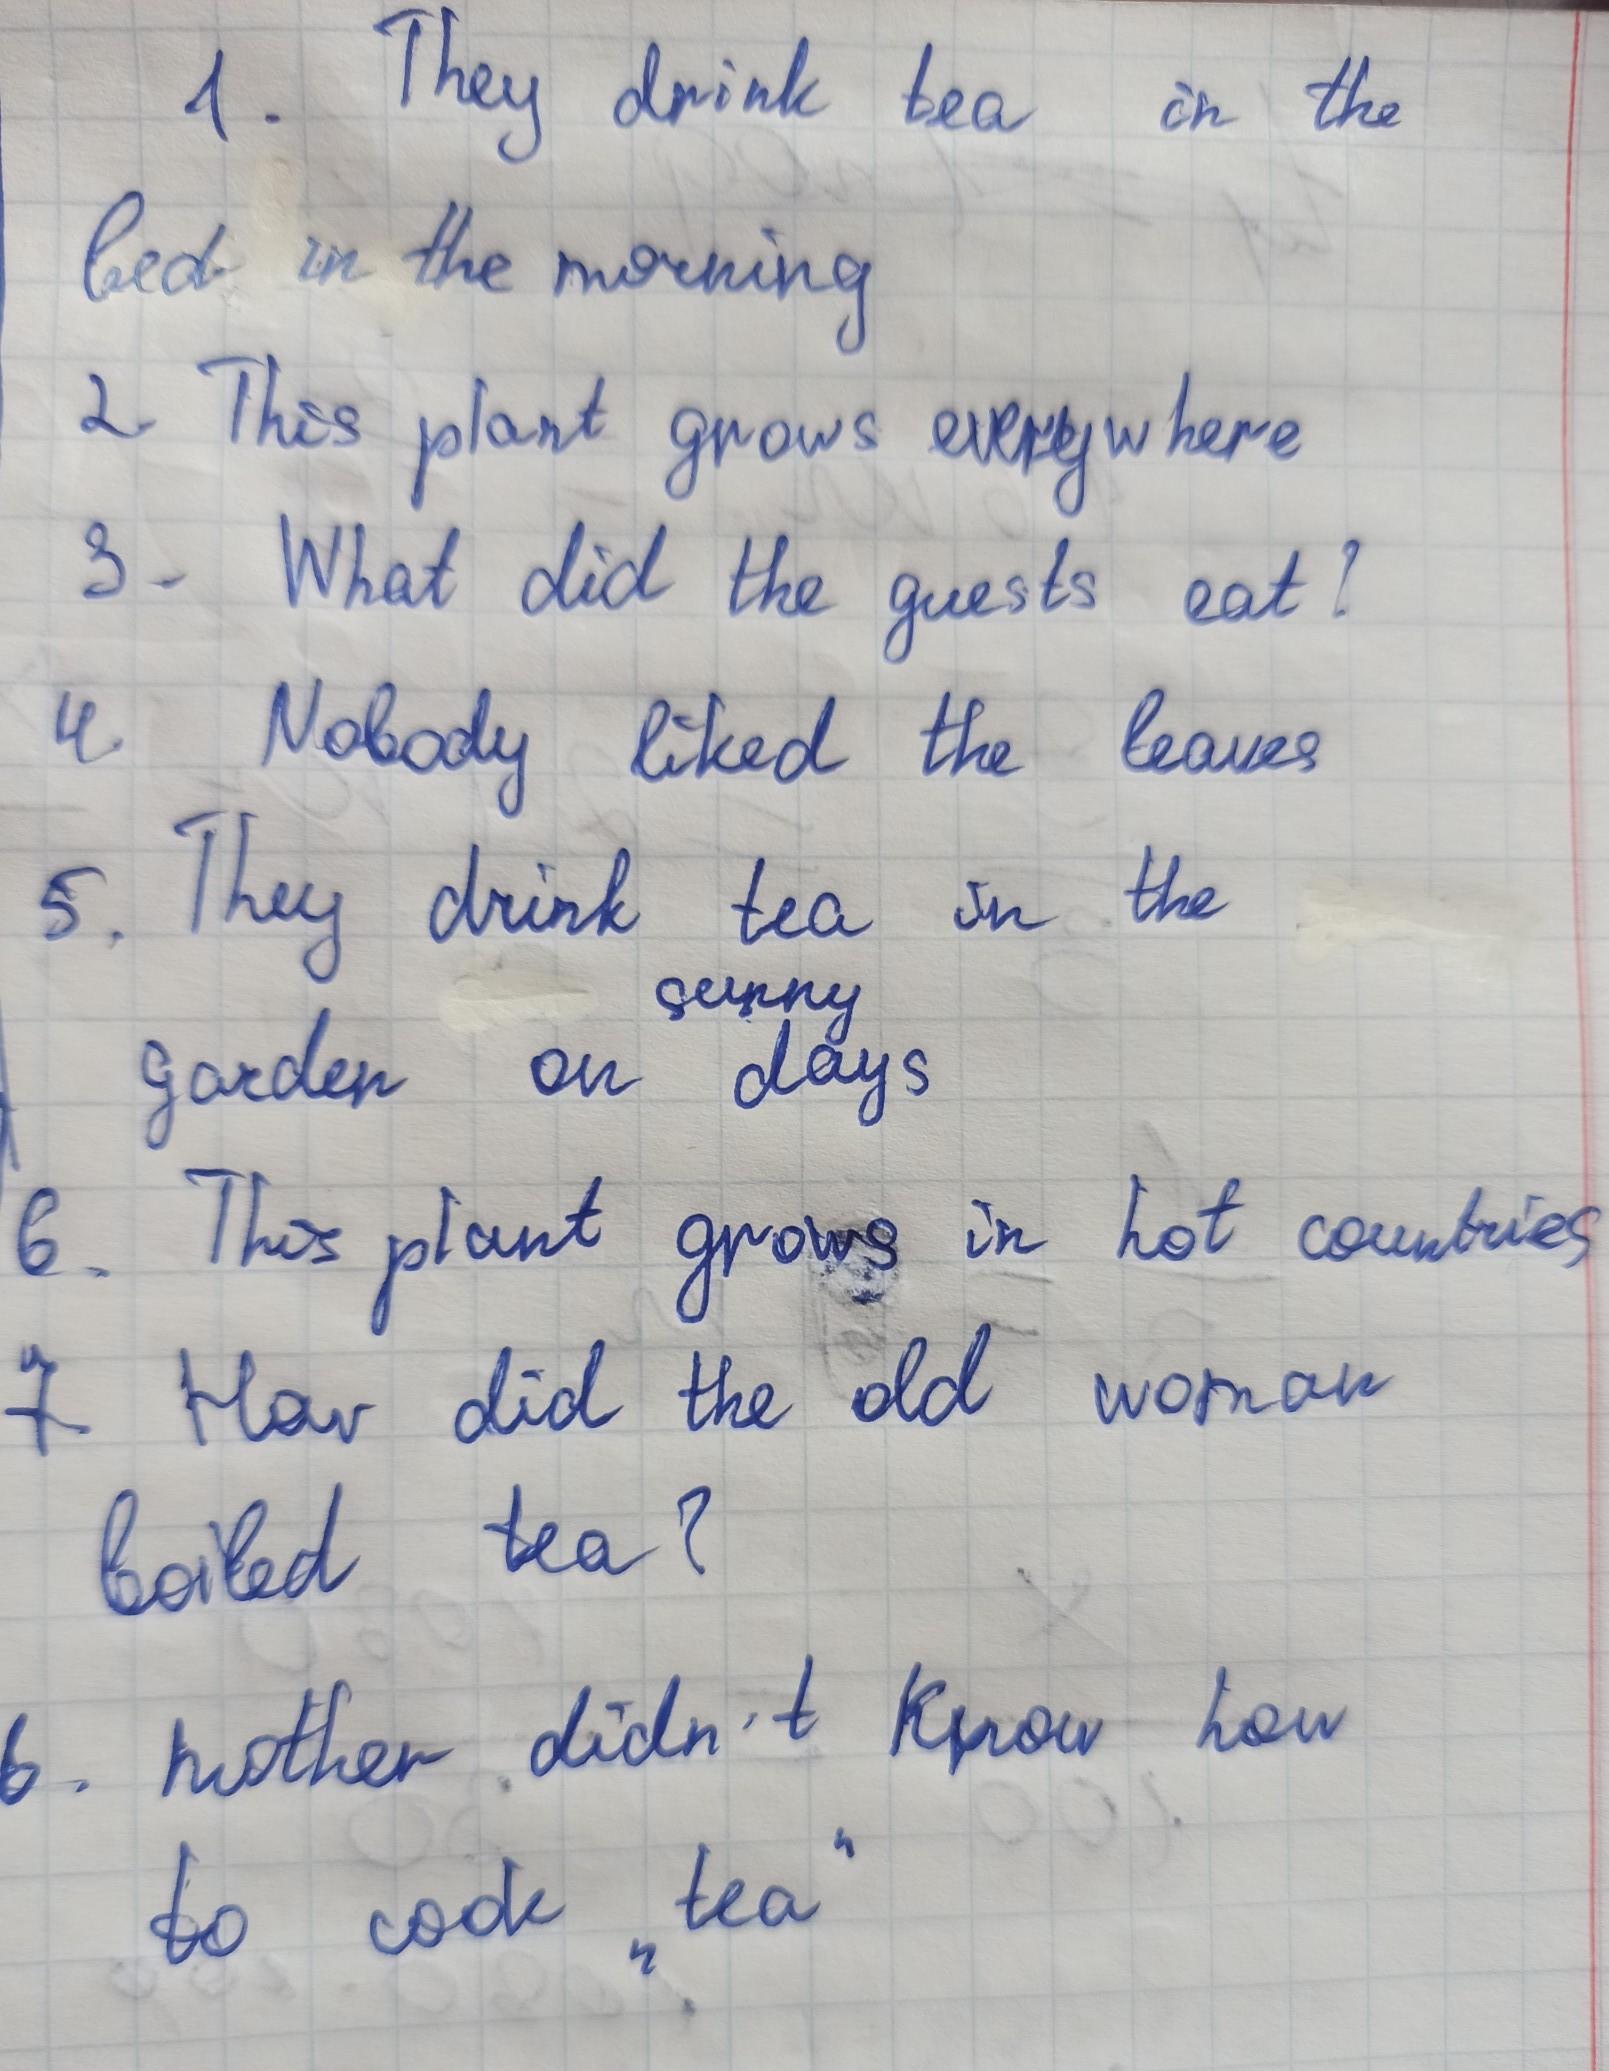 1. They drink tea in the
bed in the morning
2. This plant grows everywhere
3. What did the guests eat?
4. Nobody liked the leaves
5. They drink tea in the
sunny
garden on days
6. This plant grows in hot countries
7. How did the old woman
boiled tea?
6. mother didn't know how
to cook „tea"